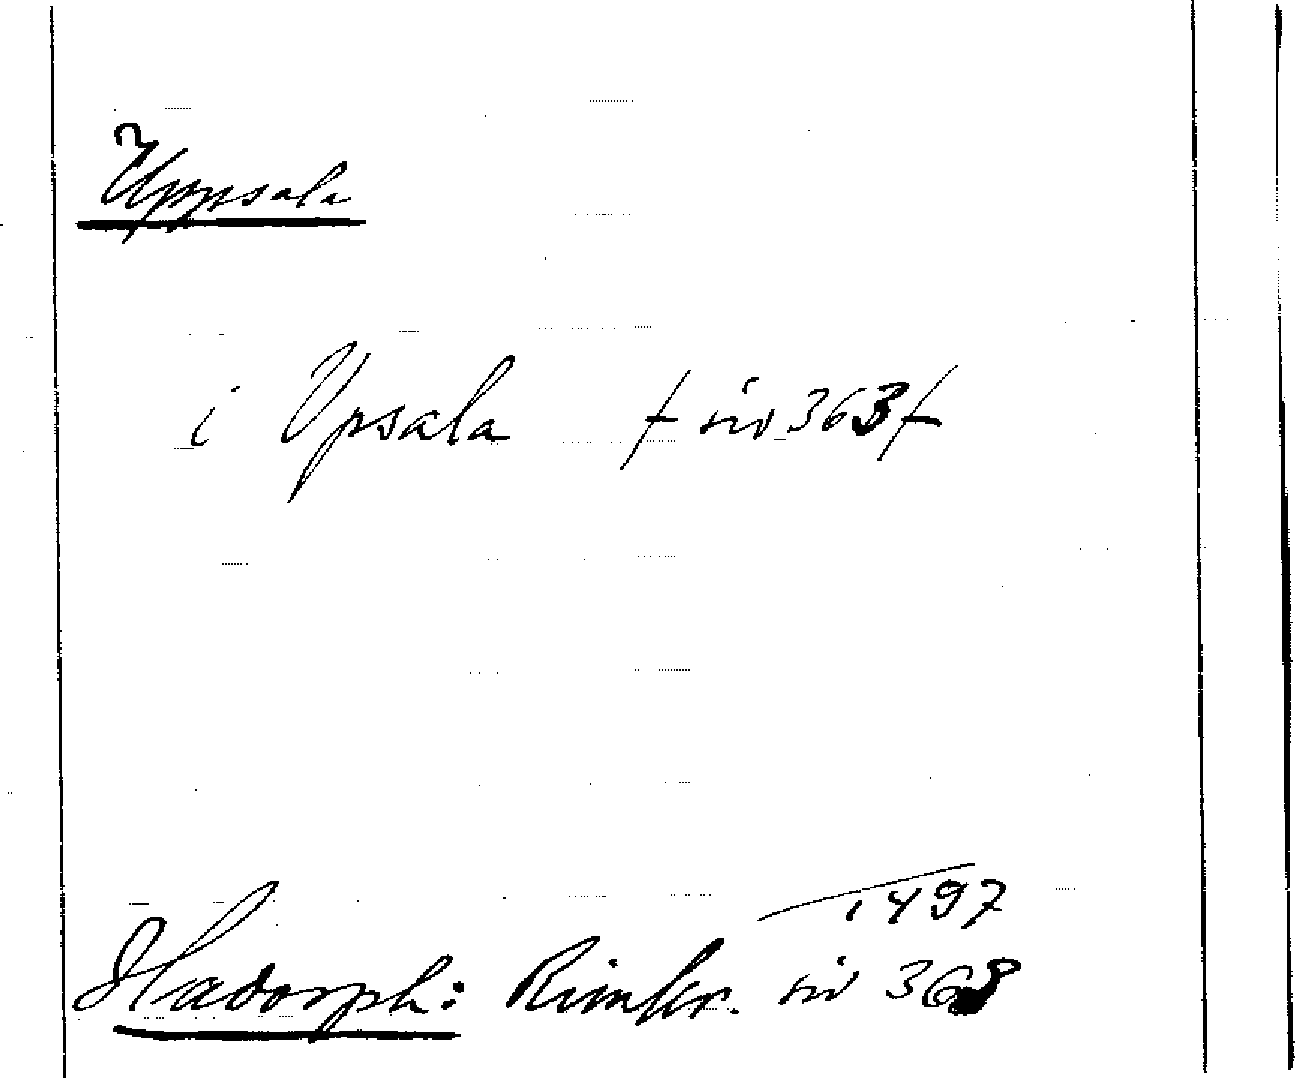 Uppsala
i Upsala / siv 363 /
1497
Hadorph: Rimkr. siv 368